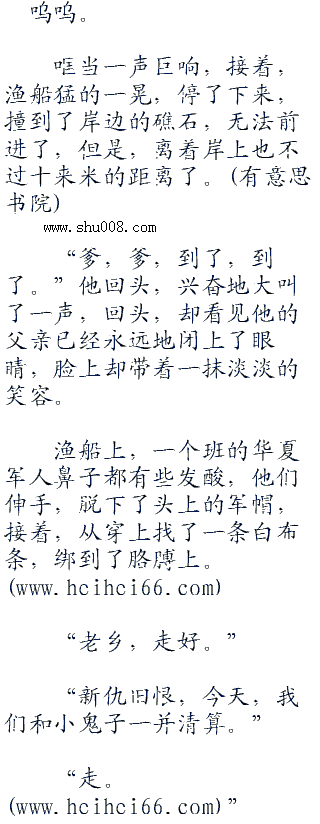 呜呜。
哐当一声巨响，接着，
渔船猛的一晃，停了下来，
撞到了岸边的礁石，无法前
进了，但是，离着岸上也不
过十来米的距离了。(有意思
书院)
www.shu008.com
“爹，爹，到了，到
了。”他回头，兴奋地大叫
了一声，回头，却看见他的
父亲已经永远地闭上了眼
睛，脸上却带着一抹淡淡的
笑容。
渔船上，一个班的华夏
军人鼻子都有些发酸，他们
伸手，脱下了头上的军帽，
接着，从穿上找了一条白布
条，绑到了胳膊上。
(www.hcihci66.com)
“老乡，走好。”
“新仇旧恨，今天，我
们和小鬼子一并清算。”
“走。
(www.hcihci66.com)”